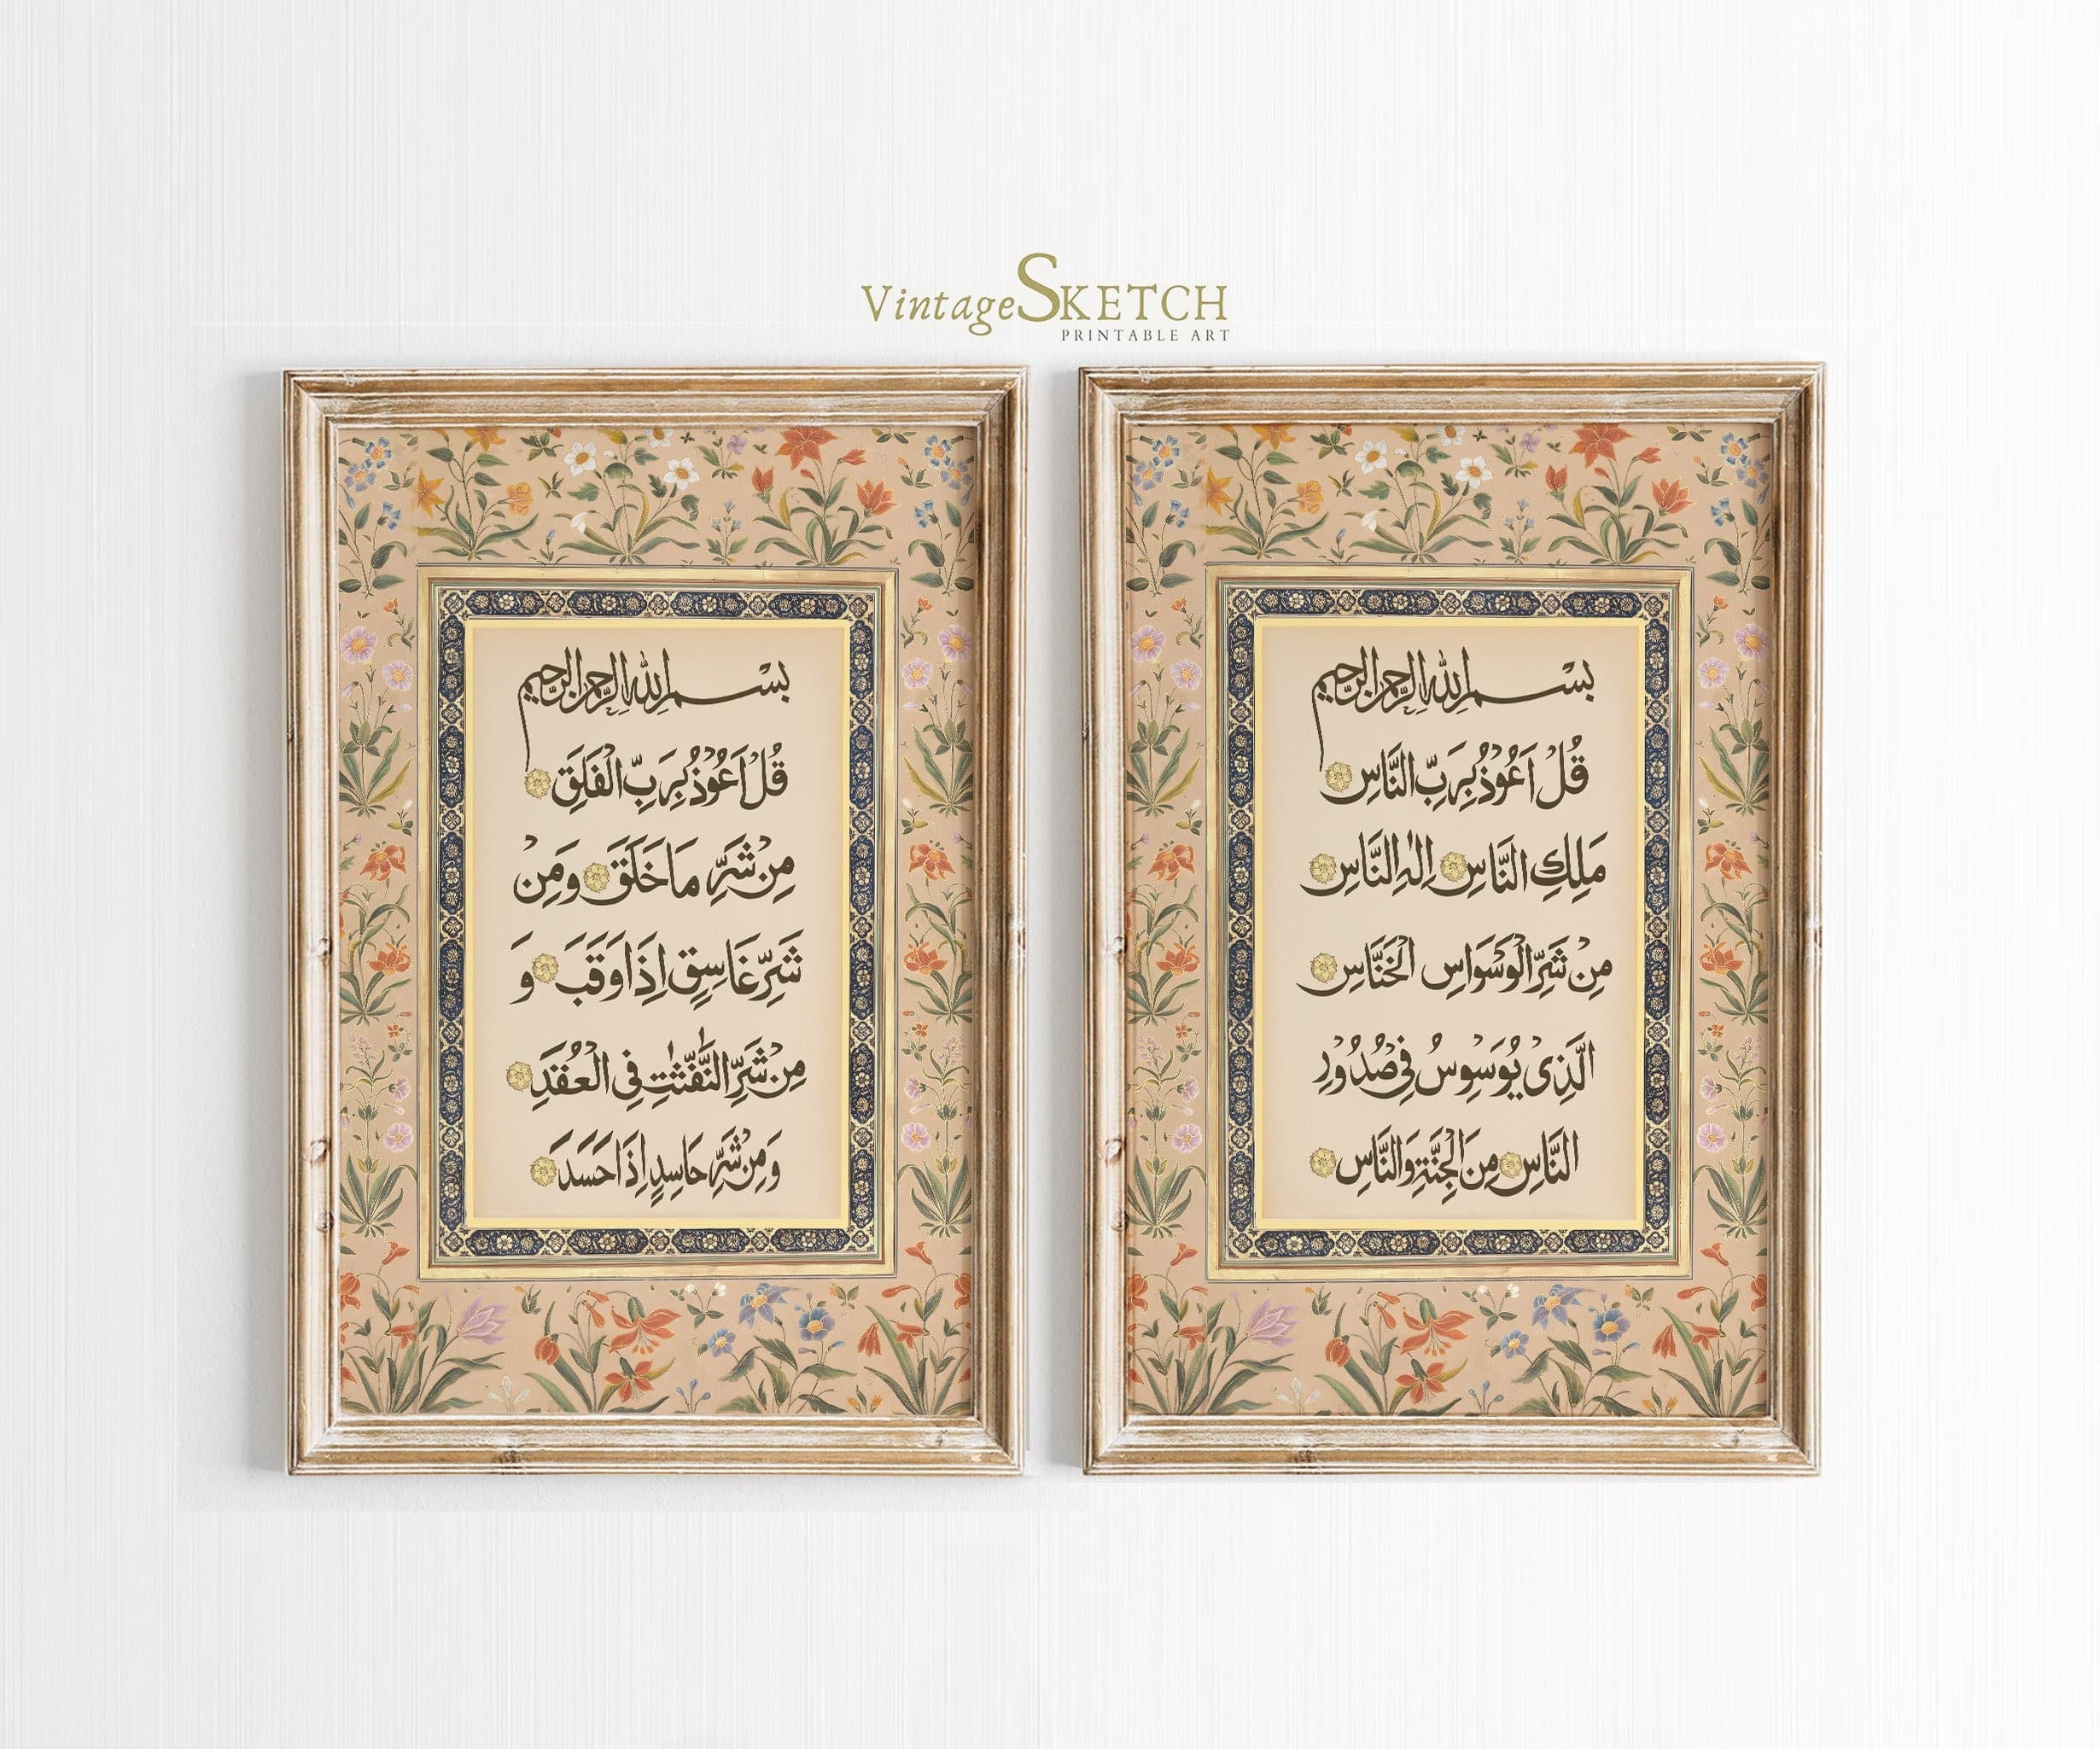 VintageSKETCH
PRINTABLE ART
بسم الله الرحمن الرحيم
قُلْ اَعُوْذُ بِرَبِّ الْفَلَقِ
مِنْ شَرِّ مَا خَلَقَ وَمِنْ
شَرِّ غَاسِقٍ اِذَا وَقَبَ وَ
مِنْ شَرِّ النَّفّٰثٰتِ فِي الْعُقَدِ
وَمِنْ شَرِّ حَاسِدٍ اِذَا حَسَدَ
بسم الله الرحمن الرحيم
قُلْ اَعُوْذُ بِرَبِّ النَّاسِ
مَلِكِ النَّاسِ اِلٰهِ النَّاسِ
مِنْ شَرِّ الْوَسْوَاسِ الْخَنَّاسِ
الَّذِىْ يُوَسْوِسُ فِيْ صُدُوْرِ
النَّاسِ مِنَ الْجِنَّةِ وَالنَّاسِ